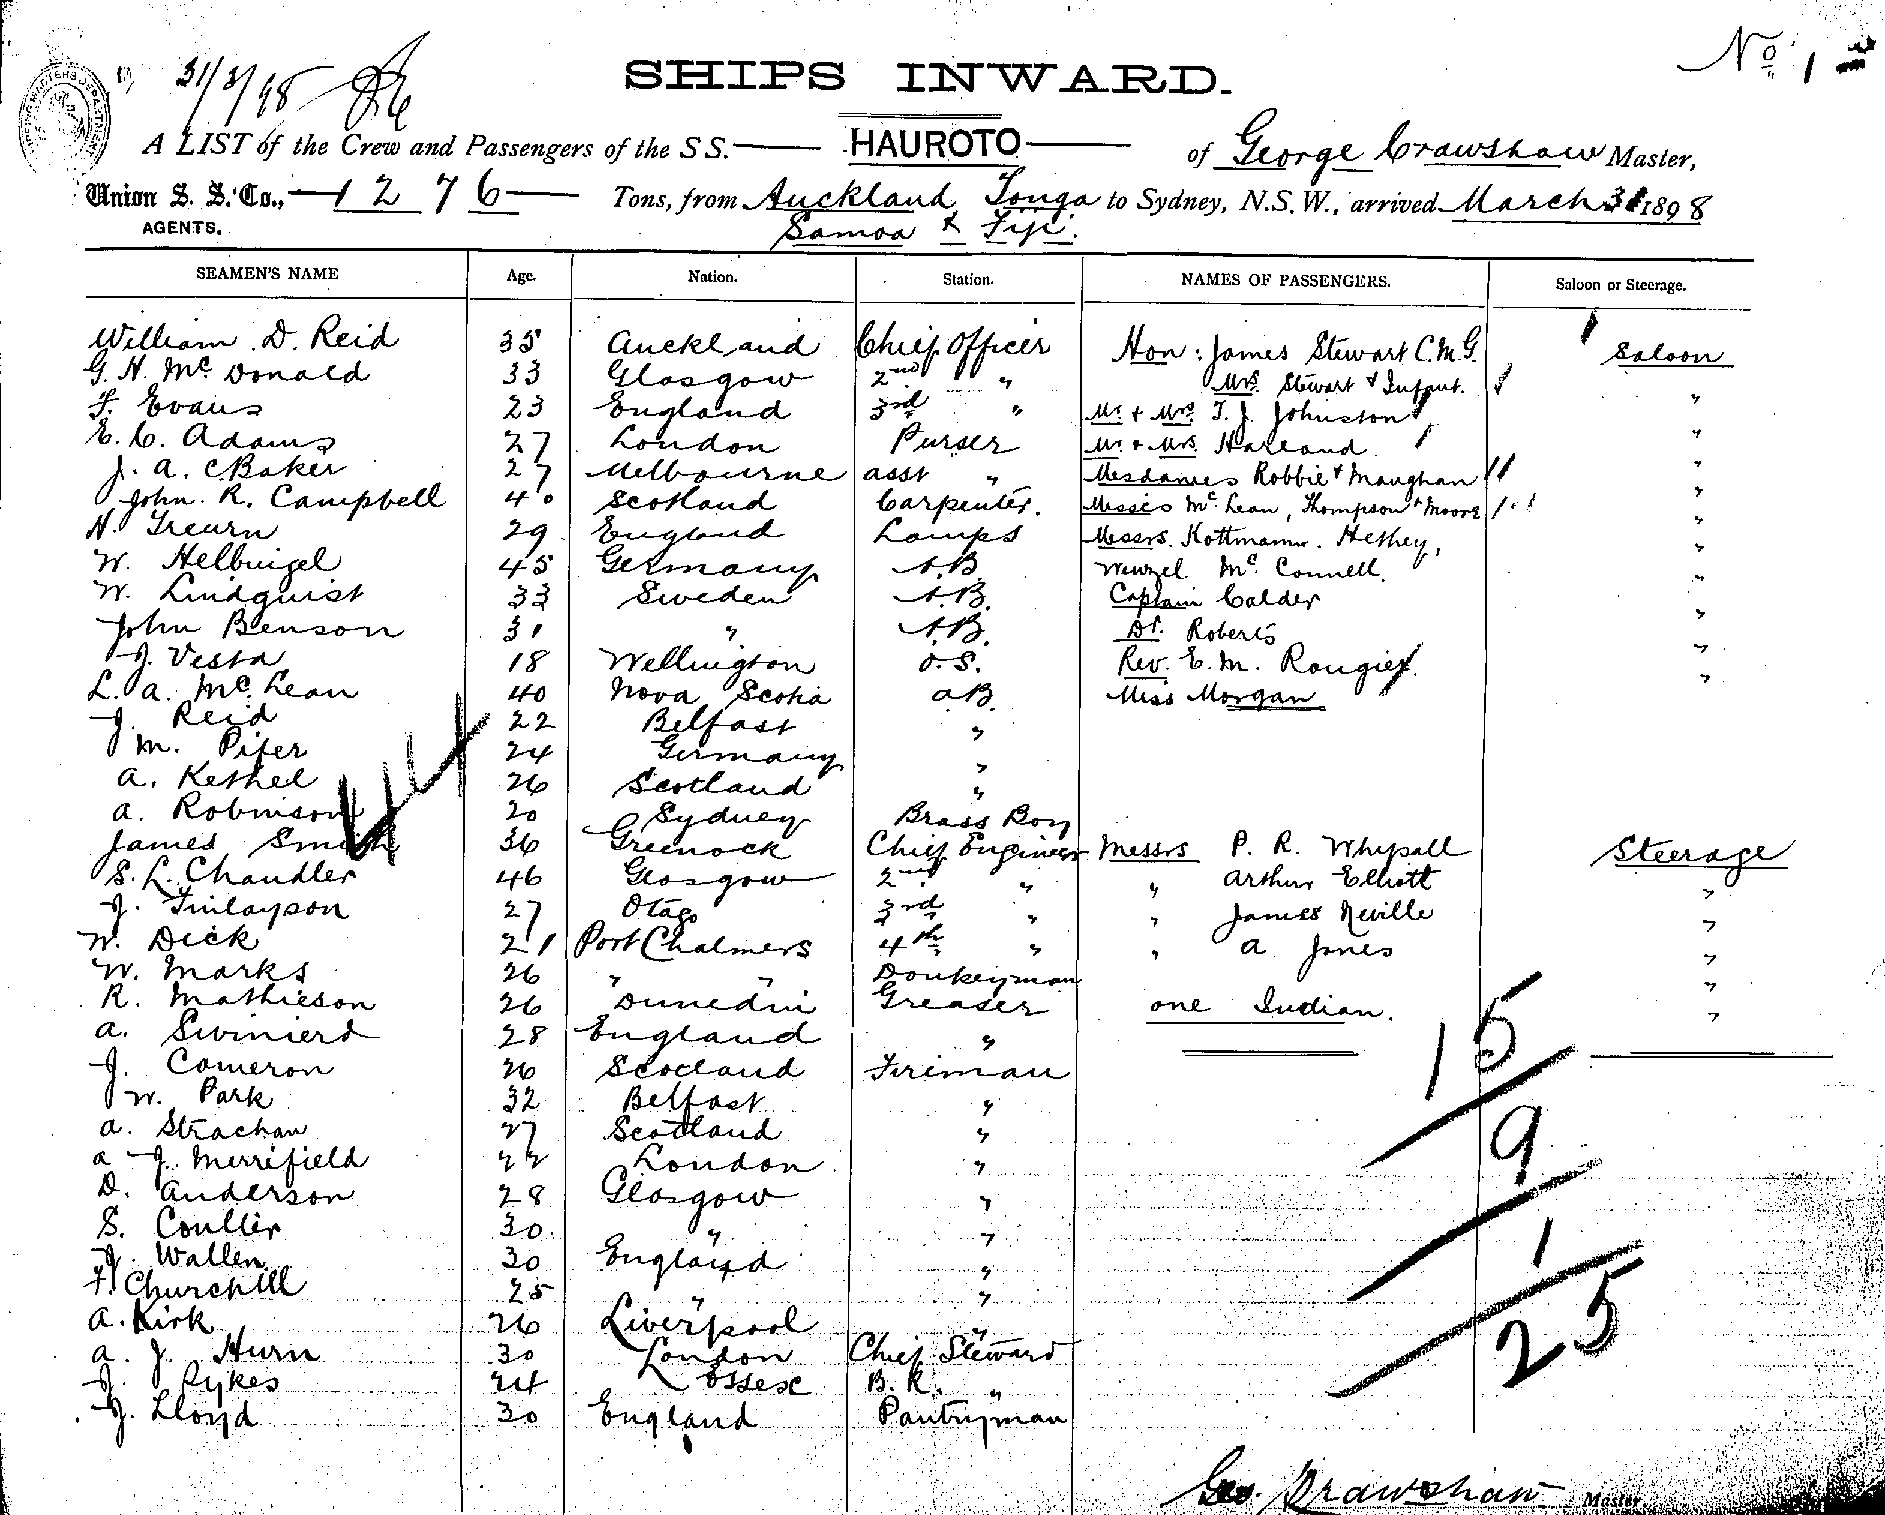 31/3/98
No. 1
SHIPS INWARD.
A LIST of the Crew and Passengers of the SS. HAUROTO of George Crawshaw Master,
Union S. S. Co., 1276 Tons, from Auckland Tonga to Sydney, N.S.W., arrived March 31 1898
AGENTS. Samoa & Fiji.
SEAMEN'S NAME Age. Nation. Station. NAMES OF PASSENGERS. Saloon or Steerage.
William D. Reid 35 Auckland Chief Officer Hon: James Stewart C.M.G. Saloon
G. H. McDonald 33 Glasgow 2nd " Mrs. Stewart & Infant. "
F. Evans 23 England 3rd " Mr. & Mrs. T. J. Johnston "
E. C. Adams 27 London Purser Mr. & Mrs. Harland "
J. A. Baker 27 Melbourne asst " Mesdames Robbie & Maughan "
John. R. Campbell 40 Scotland Carpenter. Messrs McLean, Thompson & Moore "
N. Treurn 29 England Lamps Messrs. Kottmann. Hethey, "
W. Helbuigel 45 Germany A.B Wenzel McConnell. "
W. Lindquist 33 Sweden A.B. Captain Calder "
John Benson 31 " A.B. Dr. Roberts "
J. Vesta 18 Wellington O.S. Rev. E. M. Rougier. "
L. A. McLean 40 Nova Scotia AB. Miss Morgan
J. Reid 22 Belfast "
M. Pifer 24 Germany "
A. Kethel 26 Scotland "
A. Robinson 20 Sydney Brass Boy
James Smith 36 Greenock Chief Engineer Messrs P. R. Whysall Steerage
S. L. Chandler 46 Glasgow 2nd " " Arthur Elliott "
J. Finlayson 27 Otago 3rd " " James Neville "
W. Dick 21 Port Chalmers 4th " " A Jones "
W. Marks 26 " " Donkeyman "
R. Mathieson 26 Dunedin Greaser one Indian. "
A. Swinierd 28 England " 15
J. Cameron 26 Scotland Fireman
W. Park 32 Belfast "
A. Strachan 27 Scotland " 9
A J. Merrifield 22 London "
D. Anderson 28 Glasgow "
S. Coulter 30. " " 1
J. Wallen 30 England "
F. Churchill 25 " "
A. Kirk 26 Liverpool " 25
A. J. Hurn 30 London Chief Steward
J. Sykes 24 Essex B. R. "
J. Lloyd 30 England Pantryman
44
Geo. Crawshaw Master